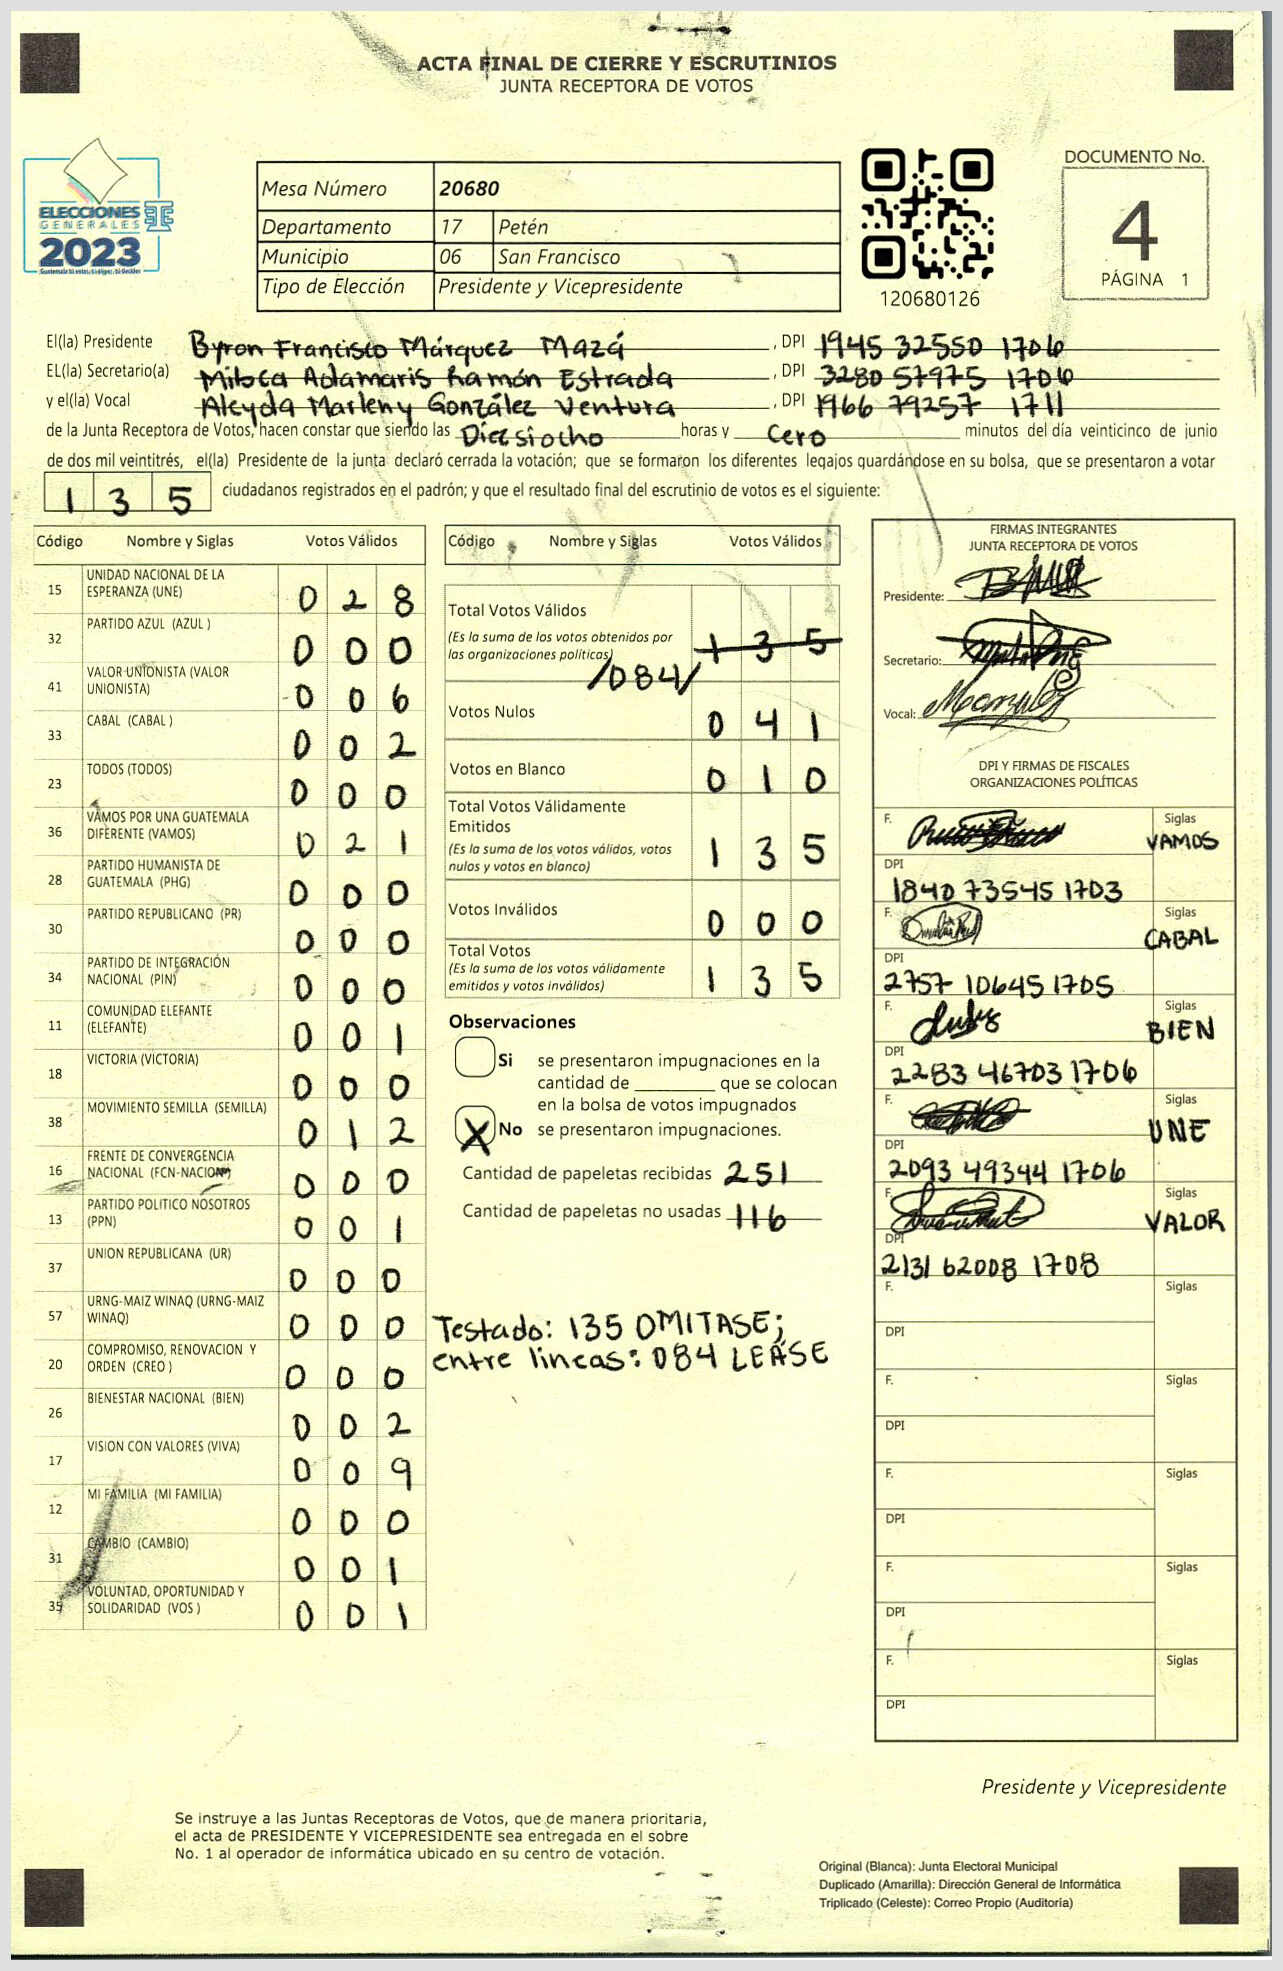 ACTA FINAL DE CIERRE Y ESCRUTINIOS
JUNTA RECEPTORA DE VOTOS
ELECCIONES
GENERALES
2023
Mesa Número 20680
Departamento 17 Petén
Municipio 06 San Francisco
Tipo de Elección Presidente y Vicepresidente
120680126
DOCUMENTO No.
4
PÁGINA 1
El(la) Presidente Byron Francisco Márquez Mazá , DPI 1945 32550 1706
EL(la) Secretario(a) Milbca Adamaris Ramón Estrada , DPI 3280 57975 1706
y el(la) Vocal Aleyda Marleny González Ventura , DPI 1966 79257 1711
de la Junta Receptora de Votos, hacen constar que siendo las Dieciocho horas y Cero minutos del día veinticinco de junio
de dos mil veintitrés, el(la) Presidente de la junta declaró cerrada la votación; que se formaron los diferentes legajos guardándose en su bolsa, que se presentaron a votar
135 ciudadanos registrados en el padrón; y que el resultado final del escrutinio de votos es el siguiente:
Código Nombre y Siglas Votos Válidos
15 UNIDAD NACIONAL DE LA ESPERANZA (UNE) 0 2 8
32 PARTIDO AZUL (AZUL ) 0 0 0
41 VALOR-UNIONISTA (VALOR UNIONISTA) 0 0 6
33 CABAL (CABAL ) 0 0 2
23 TODOS (TODOS) 0 0 0
36 VAMOS POR UNA GUATEMALA DIFERENTE (VAMOS) 0 2 1
28 PARTIDO HUMANISTA DE GUATEMALA (PHG) 0 0 0
30 PARTIDO REPUBLICANO (PR) 0 0 0
34 PARTIDO DE INTEGRACIÓN NACIONAL (PIN) 0 0 0
11 COMUNIDAD ELEFANTE (ELEFANTE) 0 0 1
18 VICTORIA (VICTORIA) 0 0 0
38 MOVIMIENTO SEMILLA (SEMILLA) 0 1 2
16 FRENTE DE CONVERGENCIA NACIONAL (FCN-NACION) 0 0 0
13 PARTIDO POLITICO NOSOTROS (PPN) 0 0 1
37 UNION REPUBLICANA (UR) 0 0 0
57 URNG-MAIZ WINAQ (URNG-MAIZ WINAQ) 0 0 0
20 COMPROMISO, RENOVACION Y ORDEN (CREO ) 0 0 0
26 BIENESTAR NACIONAL (BIEN) 0 0 2
17 VISION CON VALORES (VIVA) 0 0 9
12 MI FAMILIA (MI FAMILIA) 0 0 0
31 CAMBIO (CAMBIO) 0 0 1
35 VOLUNTAD, OPORTUNIDAD Y SOLIDARIDAD (VOS ) 0 0 1
Código Nombre y Siglas Votos Válidos
Total Votos Válidos
(Es la suma de los votos obtenidos por
las organizaciones políticas) 1 3 5
/084/
Votos Nulos 0 4 1
Votos en Blanco 0 1 0
Total Votos Válidamente
Emitidos
(Es la suma de los votos válidos, votos
nulos y votos en blanco) 1 3 5
Votos Inválidos 0 0 0
Total Votos
(Es la suma de los votos válidamente
emitidos y votos inválidos) 1 3 5
Observaciones
Si se presentaron impugnaciones en la
cantidad de ________ que se colocan
en la bolsa de votos impugnados
X No se presentaron impugnaciones.
Cantidad de papeletas recibidas 251
Cantidad de papeletas no usadas 116
Testado: 135 OMITASE;
entre líneas: 084 LEASE
FIRMAS INTEGRANTES
JUNTA RECEPTORA DE VOTOS
Presidente:
Secretario:
Vocal:
DPI Y FIRMAS DE FISCALES
ORGANIZACIONES POLÍTICAS
F. Siglas VAMOS
DPI 1840 73545 1703
F. Siglas CABAL
DPI 2757 10645 1705
F. Siglas BIEN
DPI 2283 46703 1706
F. Siglas UNE
DPI 2093 49344 1706
F. Siglas VALOR
DPI 2131 62008 1708
F. Siglas
DPI
F. Siglas
DPI
F. Siglas
DPI
F. Siglas
DPI
F. Siglas
DPI
Presidente y Vicepresidente
Se instruye a las Juntas Receptoras de Votos, que de manera prioritaria,
el acta de PRESIDENTE Y VICEPRESIDENTE sea entregada en el sobre
No. 1 al operador de informática ubicado en su centro de votación.
Original (Blanca): Junta Electoral Municipal
Duplicado (Amarilla): Dirección General de Informática
Triplicado (Celeste): Correo Propio (Auditoría)